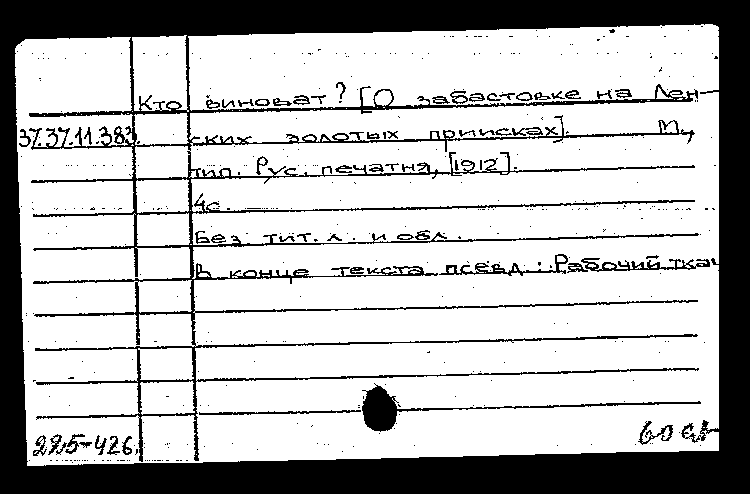 Кто виноват? [О забастовке на Лен-
37.37.11.383. ских золотых приисках]. М.,
тип. Рус. печатня, [1912].
4с.
Без тит. л. и обл.
В конце текста псевд.: Рабочий ткач
225-426.